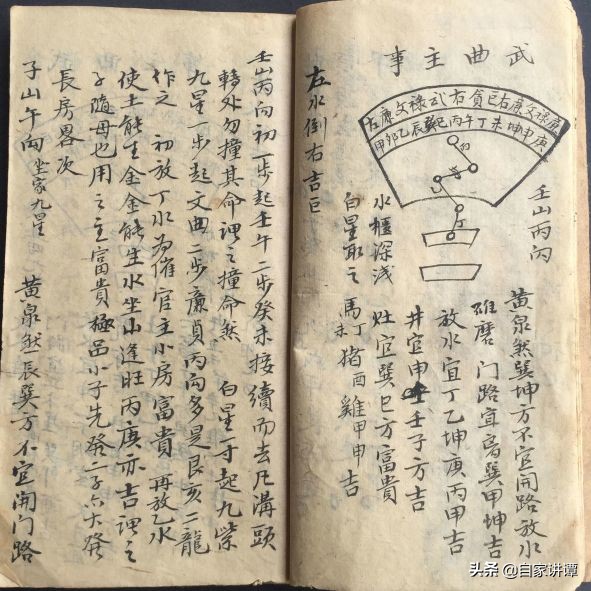 武曲主事
左廉文祿右武右貪巨右廉文祿廉
甲卯乙辰巽巳丙午丁未坤申庚
壬山丙向
黃泉煞巽坤方不宜開路放水
碓磨 門路宜高巽甲坤吉
放水宜丁乙坤庚丙甲吉
井宜申壬子方吉
灶宜巽巳方富貴
水櫃深浅
白星取之 馬丁猪酉雞甲申吉
未
左水倒右吉巨
壬山丙向初一步起壬午二步癸未接續而去凡溝頭
轉外勿撞其命謂之撞命煞 白星一寸起九紫
九星一步起文曲二步廉貞丙向多是艮亥二龍
作之 初放丁水為催官主小房富貴 再放乙水
使土能生金金能生水坐山逢旺丙庚亦吉謂之
子隨母也用之主富貴極品小子先發二子六大發
長房畧次
子山午向 坐家九星 黃泉煞辰巽方不宜開門路
头条 @自家讲谭